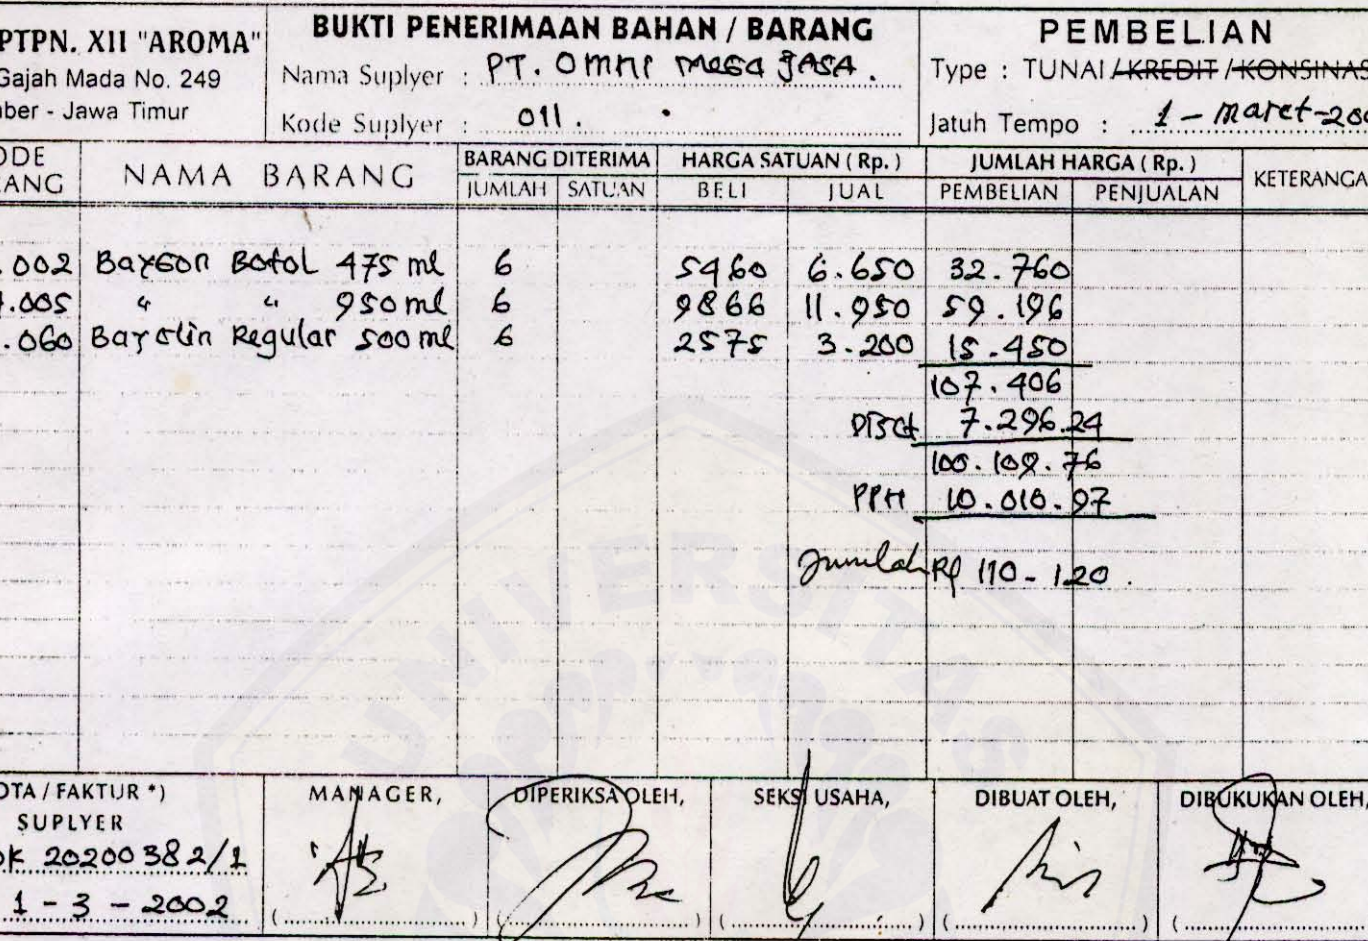 PTPN. XII "AROMA"
Gajah Mada No. 249
ber - Jawa Timur
BUKTI PENERIMAAN BAHAN / BARANG
Nama Suplyer : PT. OMNI MEGA JASA.
Kode Suplyer : 011.
PEMBELIAN
Type : TUNAI / KREDIT / KONSINAS
Jatuh Tempo : 1 - Maret - 200
ODE NAMA BARANG BARANG DITERIMA HARGA SATUAN ( Rp. ) JUMLAH HARGA ( Rp. ) KETERANGA
ANG JUMLAH SATUAN BELI JUAL PEMBELIAN PENJUALAN
.002 Baygon Botol 475 ml 6 5460 6.650 32.760
.005 " " 950 ml 6 9866 11.950 59.196
.060 Bayclin Regular 500 ml 6 2575 3.200 15.450
107.406
Disct 7.296.24
100.109.76
PPH 10.010.97
Jumlah Rp 110-120.
OTA / FAKTUR *)
SUPLYER
20200382/1
1 - 3 - 2002
MANAGER, DIPERIKSA OLEH, SEKSI USAHA, DIBUAT OLEH, DIBUKUKAN OLEH,
UNIVERSITAS